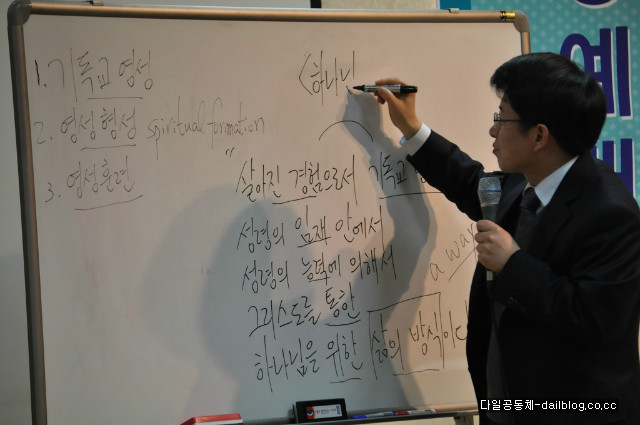 1. 기독교 영성
2. 영성형성 spiritual formation
3. 영성훈련
<하나니
"살아진 경험으로서 기독교
성령의 임재 안에서
성령의 능력에 의해서
a way
그리스도를 통한
하나님을 위한 삶의 방식이다
예
다일공동체-dailblog.co.cc